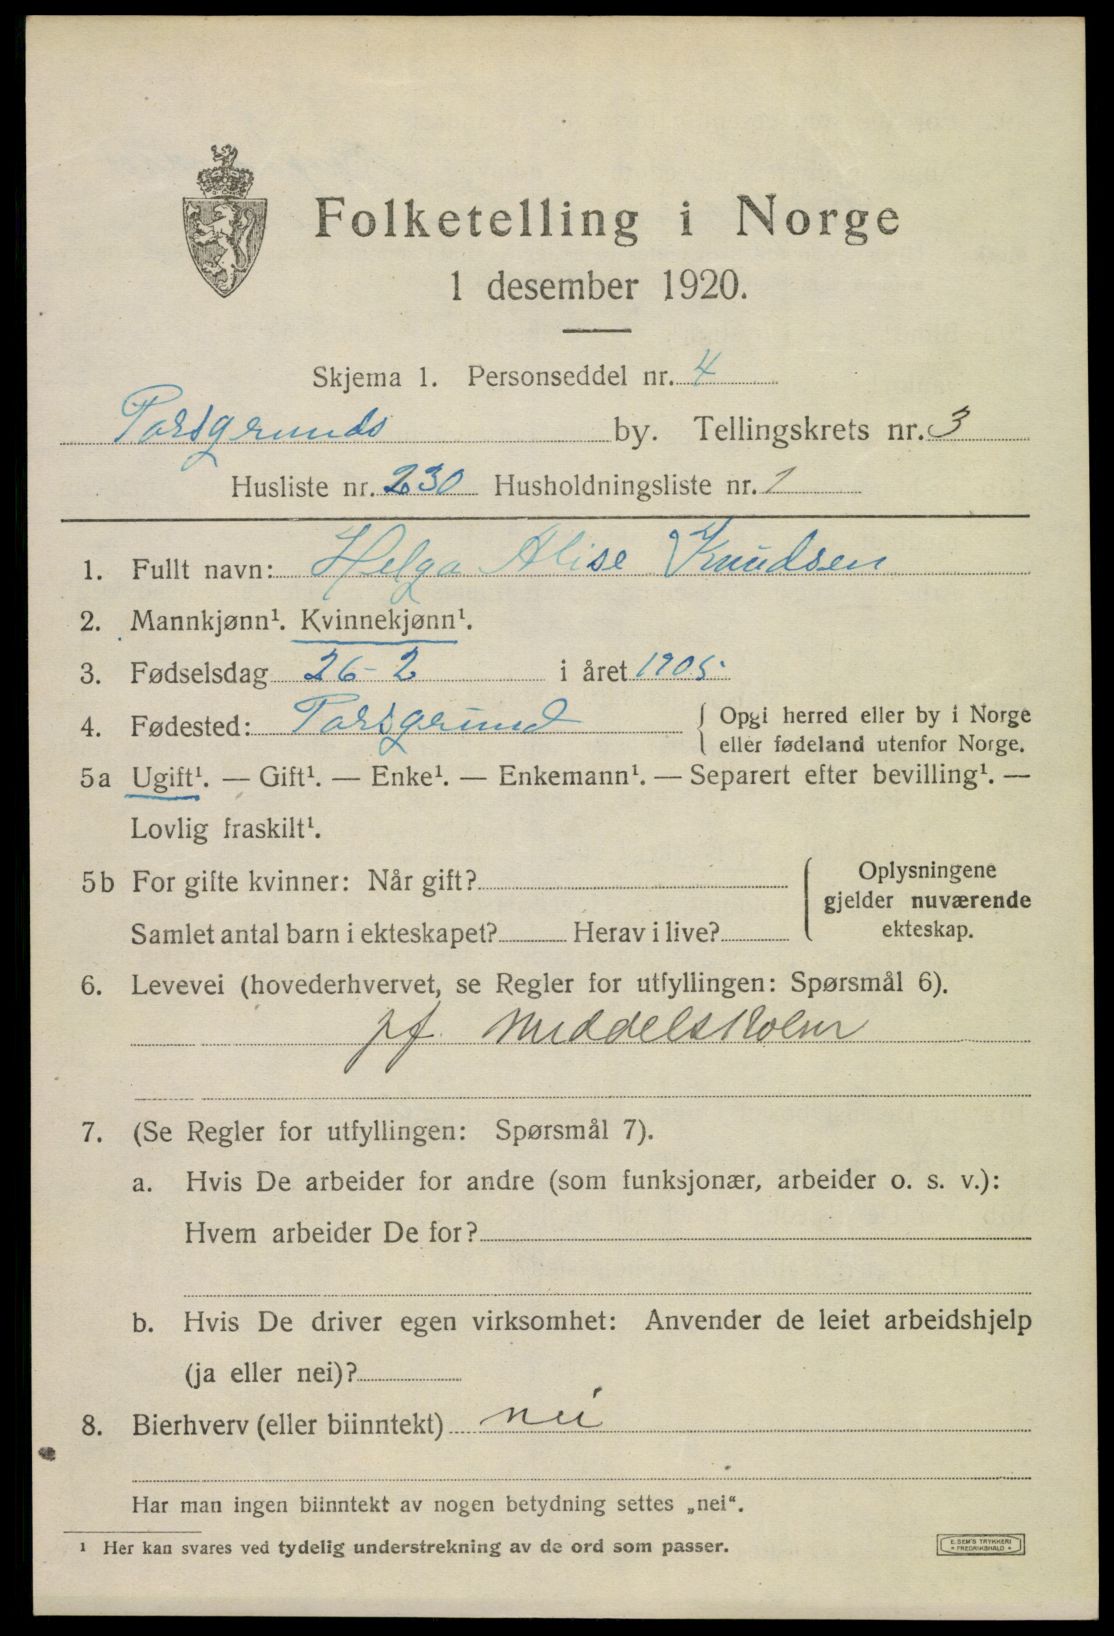 Folketelling i Norge
1 desember 1920.
Skjema 1. Personseddel nr. 4
Porsgrunds by. Tellingskrets nr. 3
Husliste nr. 230 Husholdningsliste nr. 1
1. Fullt navn: Helga Alise Knudsen
2. Mannkjønn¹. Kvinnekjønn¹.
3. Fødselsdag 26-2 i året 1905.
4. Fødested: Porsgrund { Opgi herred eller by i Norge
eller fødeland utenfor Norge.
5a Ugift¹. — Gift¹. — Enke¹. — Enkemann¹. — Separert efter bevilling¹. —
Lovlig fraskilt¹.
5b For gifte kvinner: Når gift?
Samlet antal barn i ekteskapet? Herav i live?
{ Oplysningene
gjelder nuværende
ekteskap.
6. Levevei (hovederhvervet, se Regler for utfyllingen: Spørsmål 6).
pf. Middelskolen
7. (Se Regler for utfyllingen: Spørsmål 7).
a. Hvis De arbeider for andre (som funksjonær, arbeider o. s. v.):
Hvem arbeider De for?
b. Hvis De driver egen virksomhet: Anvender de leiet arbeidshjelp
(ja eller nei)?
8. Bierhverv (eller biinntekt) nei
Har man ingen biinntekt av nogen betydning settes „nei“.
¹ Her kan svares ved tydelig understrekning av de ord som passer.
E. SEM'S TRYKKERI
• FREDRIKSHALD •